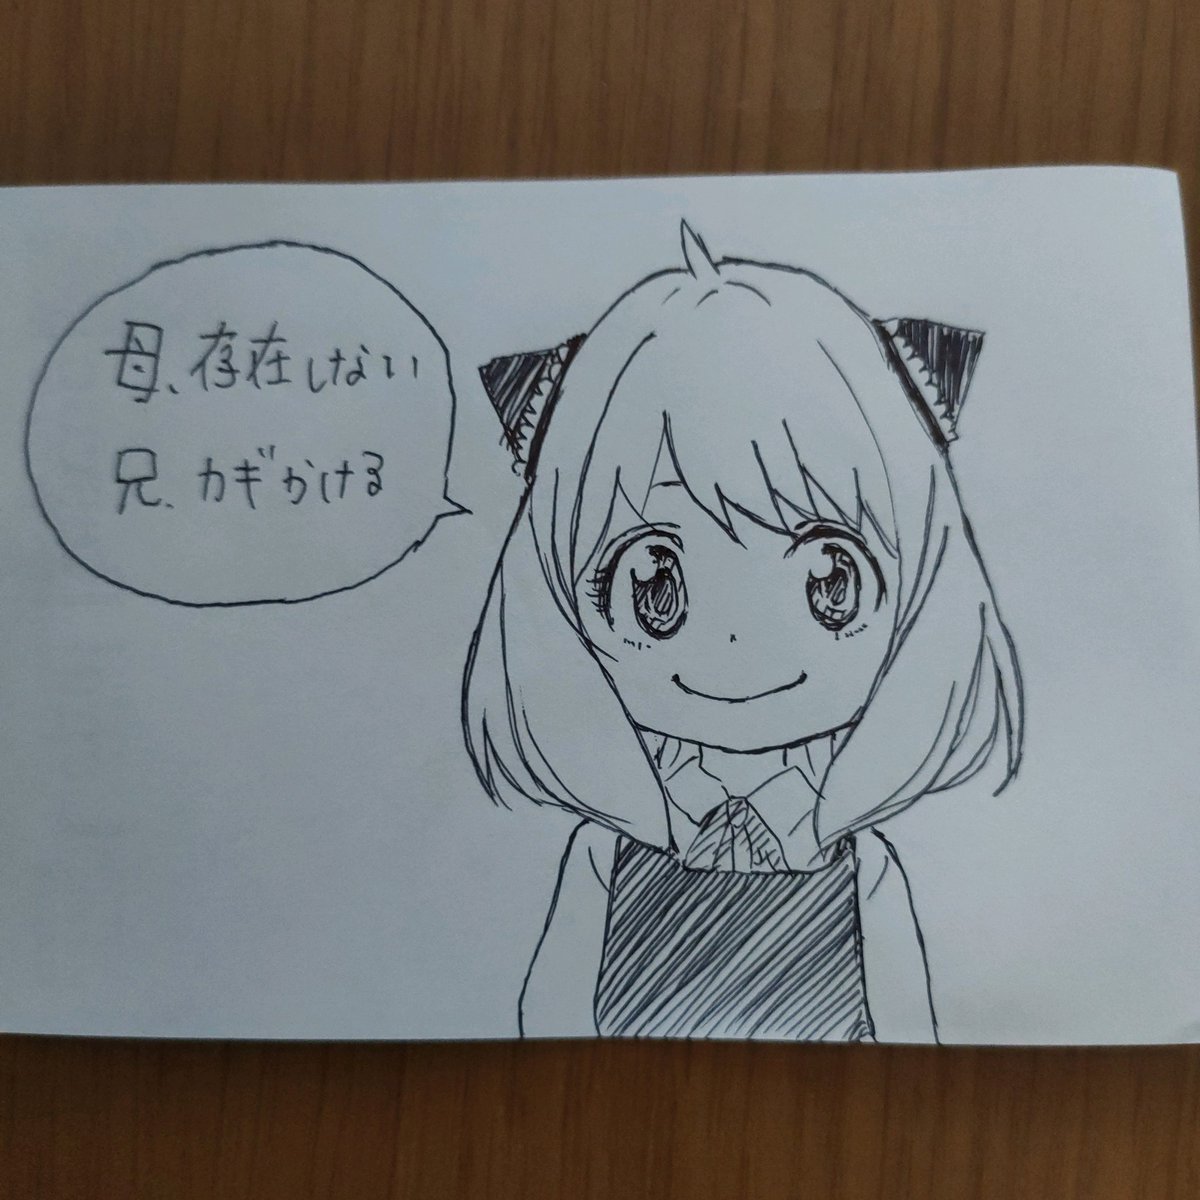 母、存在しない
兄、カギかける